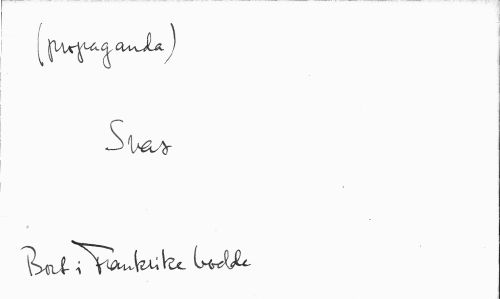 (propaganda)
Svas
Bort i Frankrike bodde